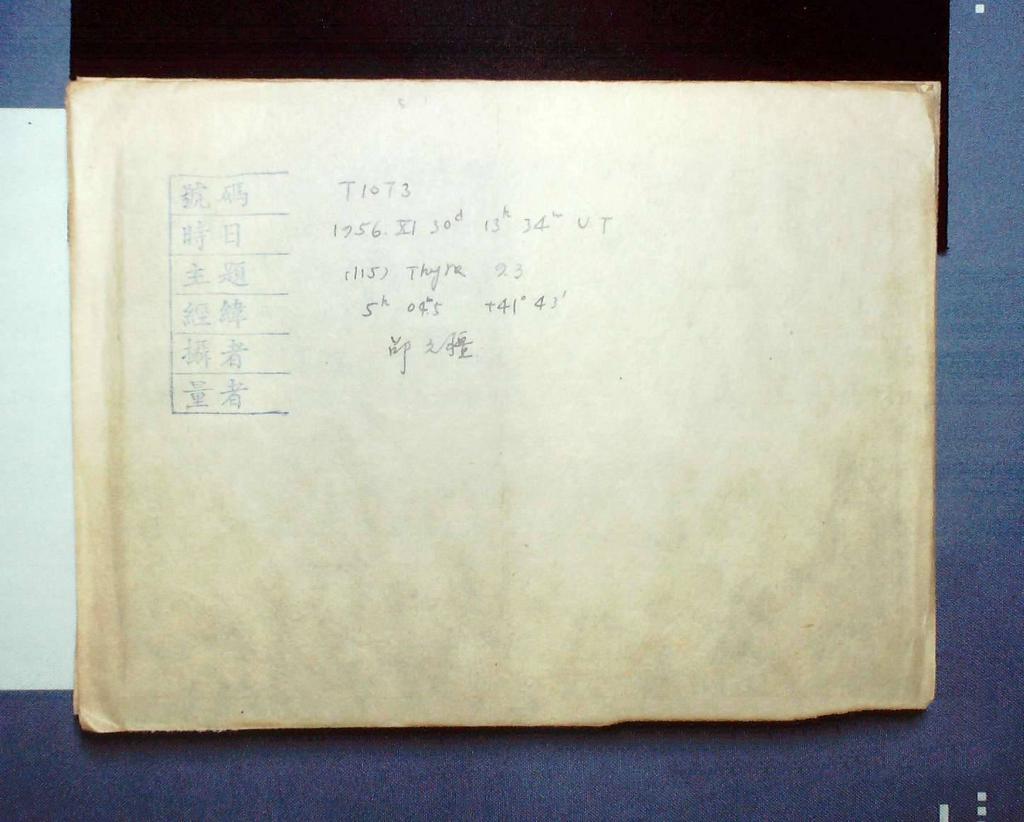 號碼 T1073
時日 1956. XI 30ᵈ 13ʰ 34ᵐ UT
主題 (115) Thyra 93
經緯 5ʰ 04ᵐ5 +41° 43'
攝者
量者